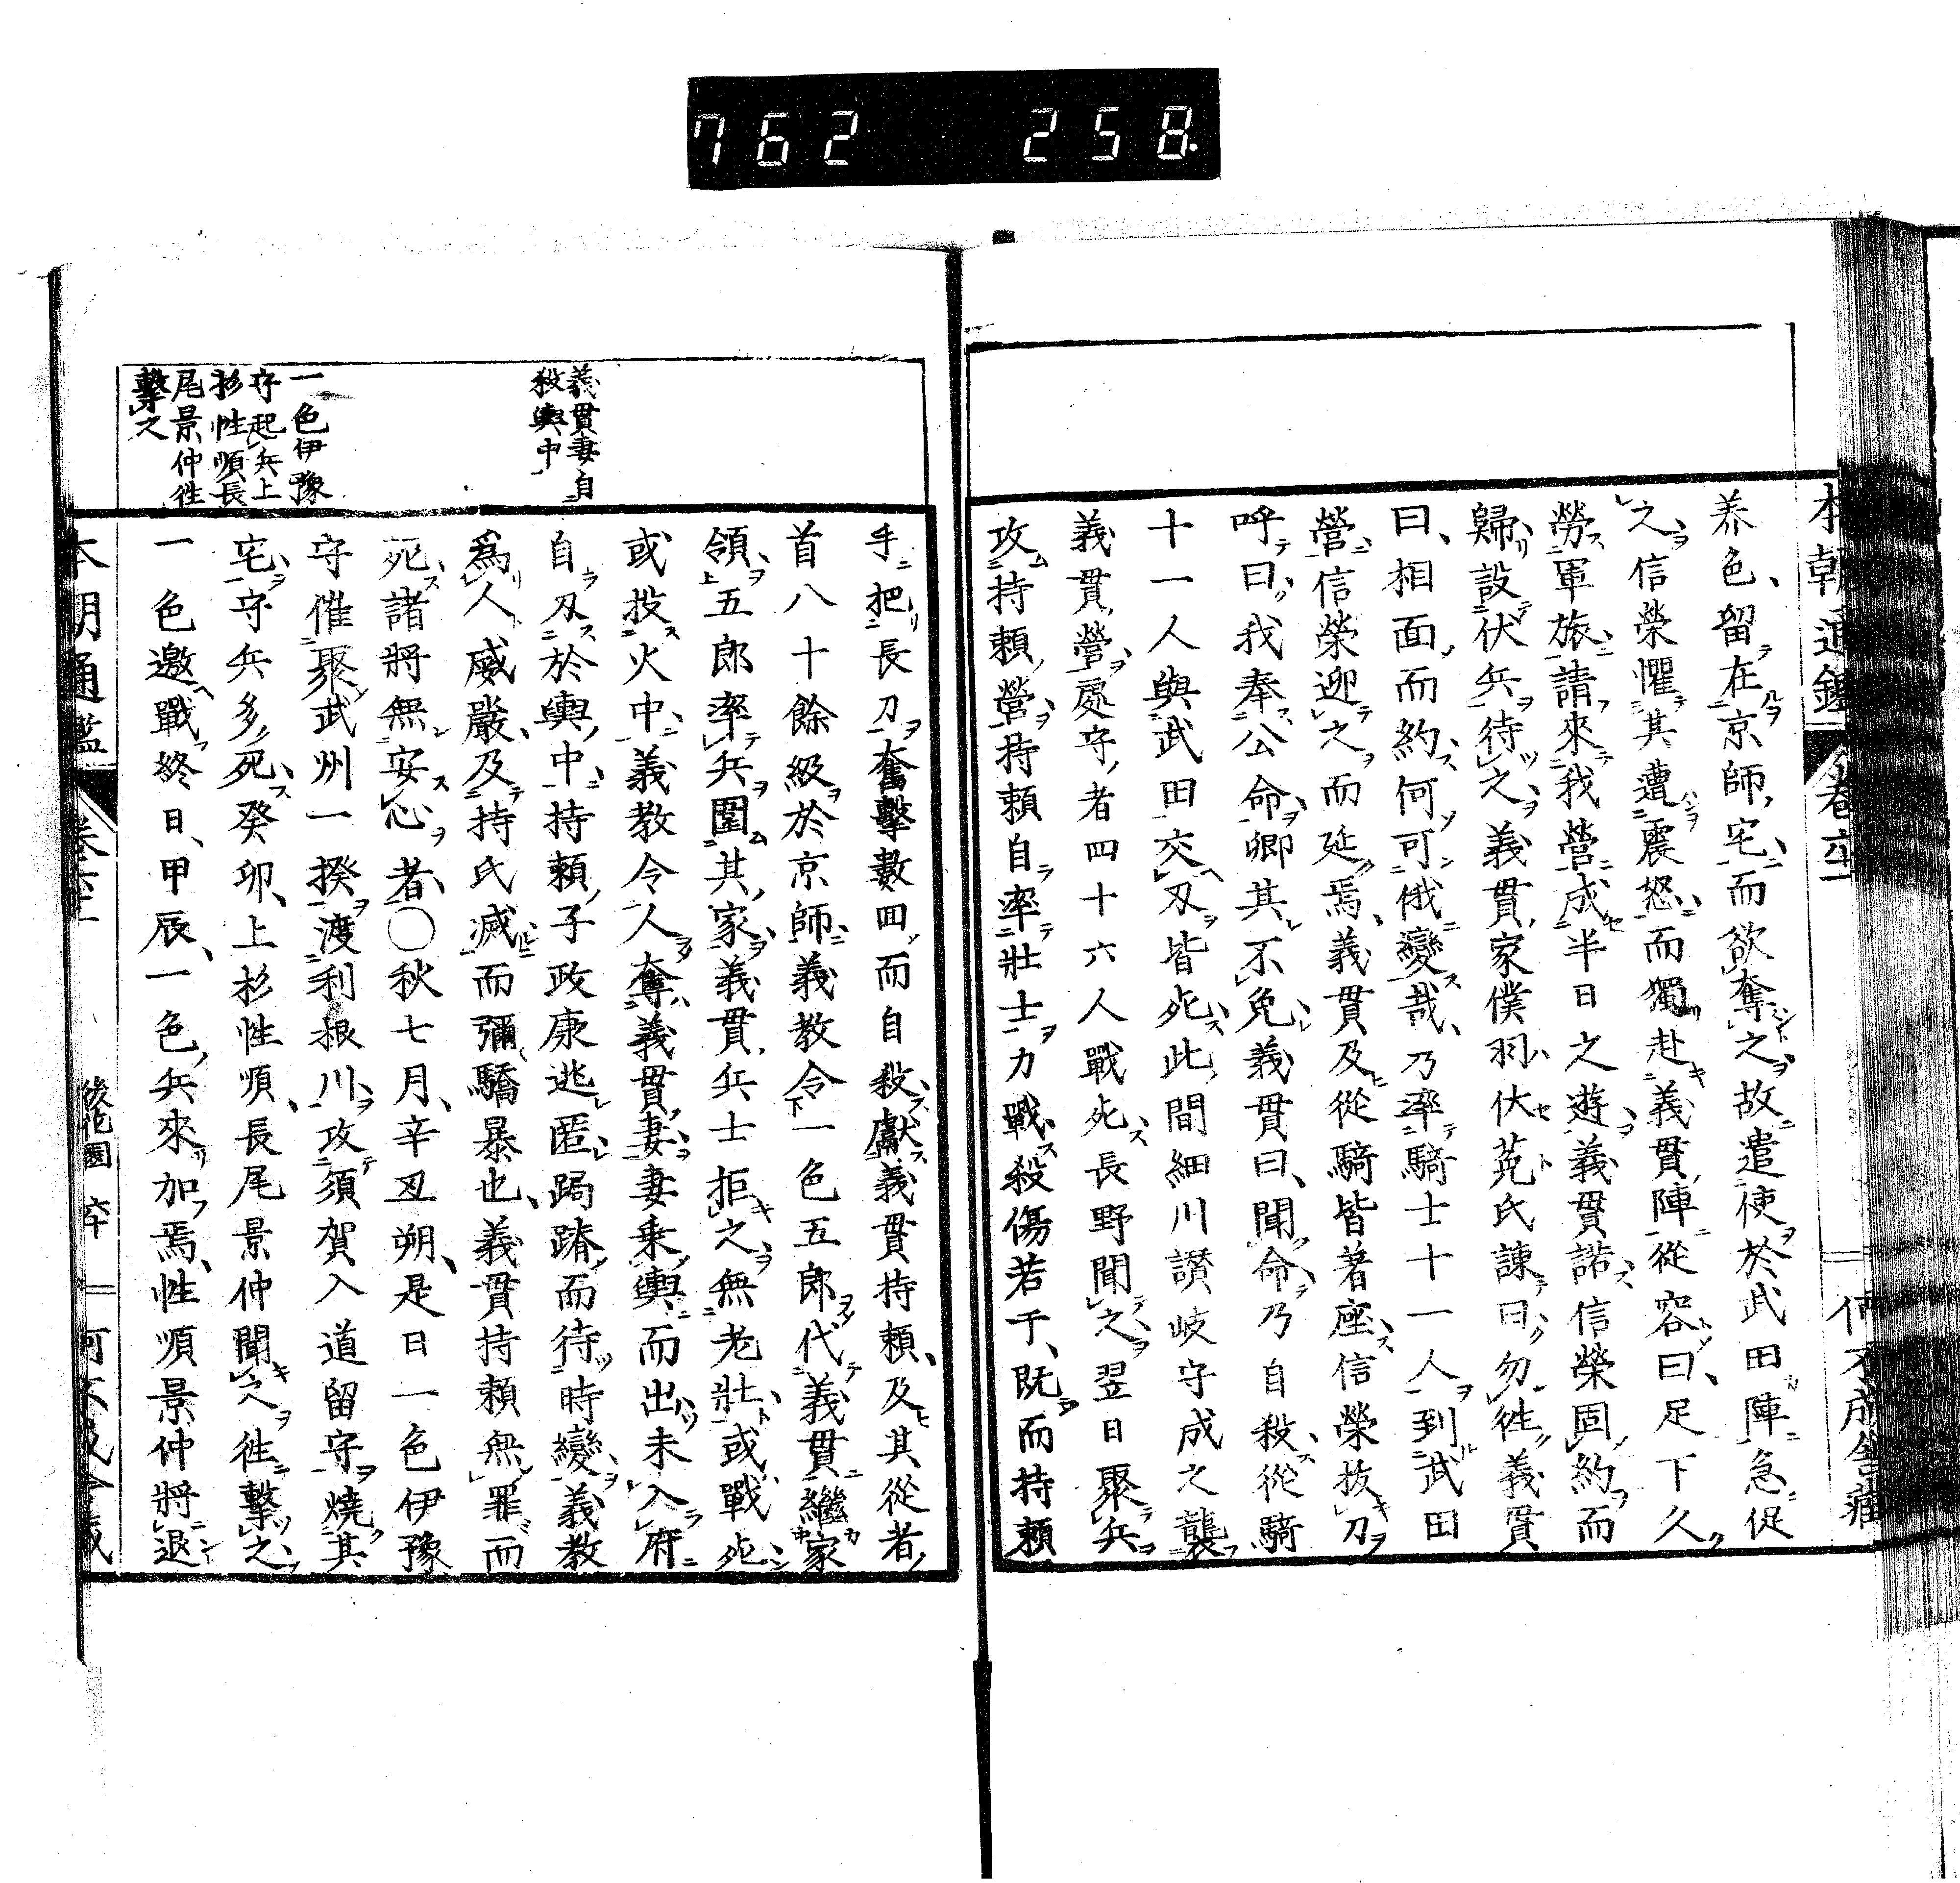 762 258.
本朝通鑑 卷六十一 何不成舎藏
养色、留在京師宅而欲奪之故遣使於武田陣急促
之信榮懼其遭震怒而獨赴義貫陣從容曰、足下久
勞軍旅請來我營成半日之遊義貫諾信榮固約而
歸設伏兵待之義貫家僕羽伏菀氏諫曰勿徃義貫
曰、相面而約何可俄變哉、乃率騎士十一人到武田
營信榮迎之而延焉、義貫及從騎皆著座信榮抜刀
呼曰我奉公命卿其不免義貫曰、聞命乃自殺從騎
十一人與武田交刄皆死此間細川讃岐守成之襲
義貫營處守者四十六人戰死長野聞之翌日聚兵
攻持頼營持頼自率壯士力戰殺傷若干、既而持頼
手把長刀奮擊數回而自殺獻義貫持頼、及其從者
首八十餘級於京師義教令一色五郎代義貫繼家
領五郎率兵圍其家義貫兵士拒之無老壯或戰死
或投火中義教令人奪義貫妻妻乗輿而出未入府
自刄於輿中持頼子政康逃匿跼蹐而待時變義教
爲人威嚴及持氏滅而彌驕暴也、義貫持頼無罪而
死諸將無安心者、〇秋七月、辛丑朔、是日一色伊豫
守催聚武州一揆渡利根川攻須賀入道留守燒其
宅守兵多死癸卯、上杉性順、長尾景仲聞之徃擊之
一色邀戰終日、甲辰、一色兵來加焉、性順景仲將退
義貫妻自
殺輿中
一色伊豫
守起兵上
杉性順長
尾景仲徃
擊之
本朝通鑑 卷六十一 後花園 何不成舎藏